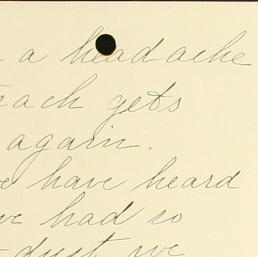 a headache
each gets
again.
have heard
had so
dust we